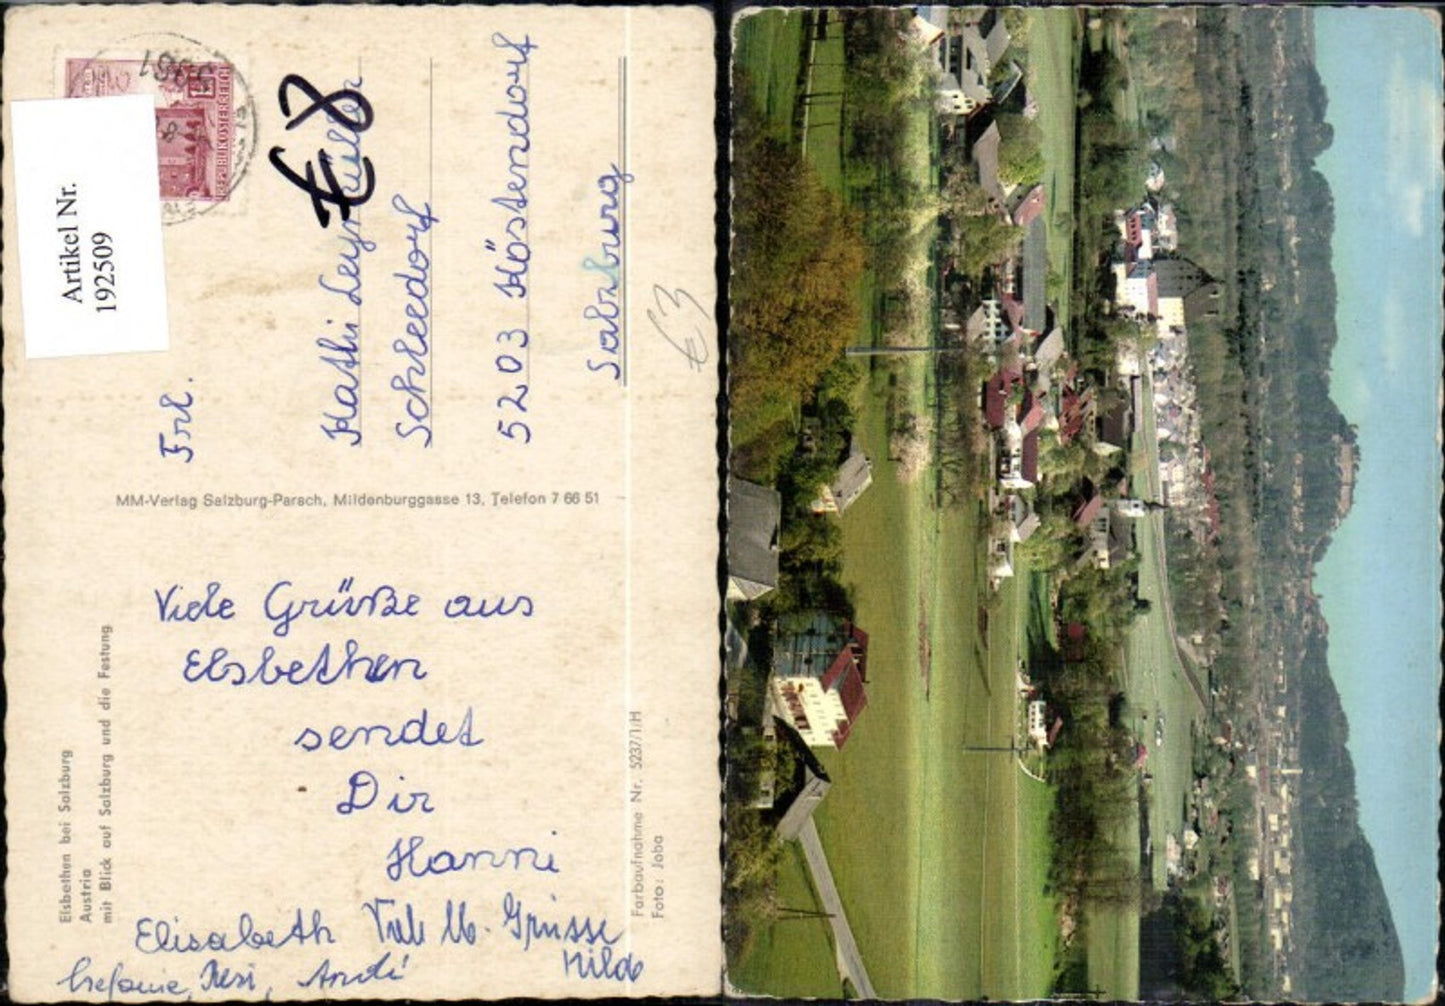 Artikel Nr.
192509
REPUBLIK ÖSTERREICH
€ 8
€3
Frl.
Kathi Leymüller
Schleedorf
5203 Köstendorf
Salzburg
MM-Verlag Salzburg-Parsch, Mildenburggasse 13, Telefon 7 66 51
Elsbethen bei Salzburg
Austria
mit Blick auf Salzburg und die Festung
Viele Grüße aus
Elsbethen
sendet
Dir
Hanni
Elisabeth Viele lb. Grüsse
Hilde
Stefanie, Resi, Andi
Farbaufnahme Nr. 5237/1/H
Foto: Jaba